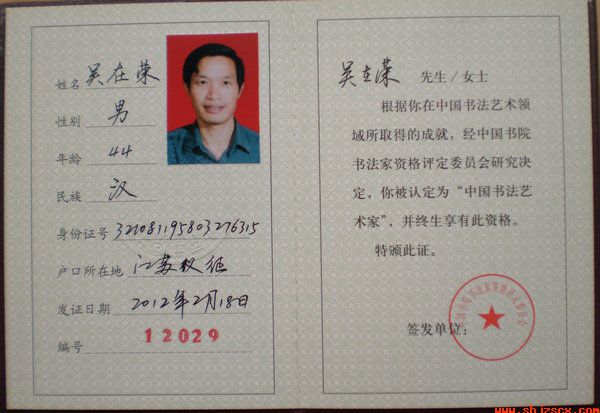 姓名 吴在荣
性别 男
年龄 44
民族 汉
身份证号 321081195803276315
户口所在地 江苏仪征
发证日期 2012年2月18日
编号 12029
吴在荣 先生/女士
根据你在中国书法艺术领
域所取得的成就，经中国书院
书法家资格评定委员会研究决
定，你被认定为“中国书法艺
术家”，并终生享有此资格。
特颁此证。
签发单位：
www.shjzscx.com